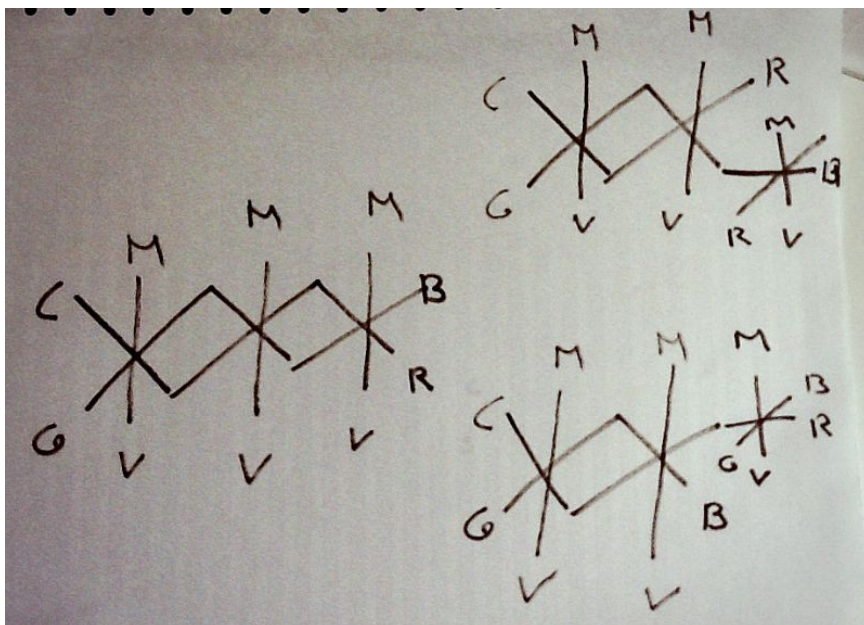 M M
C R
M
B
G V V
R V
M M M
C B
R
G V V V
M M M
C B
R
G G V
B
V V